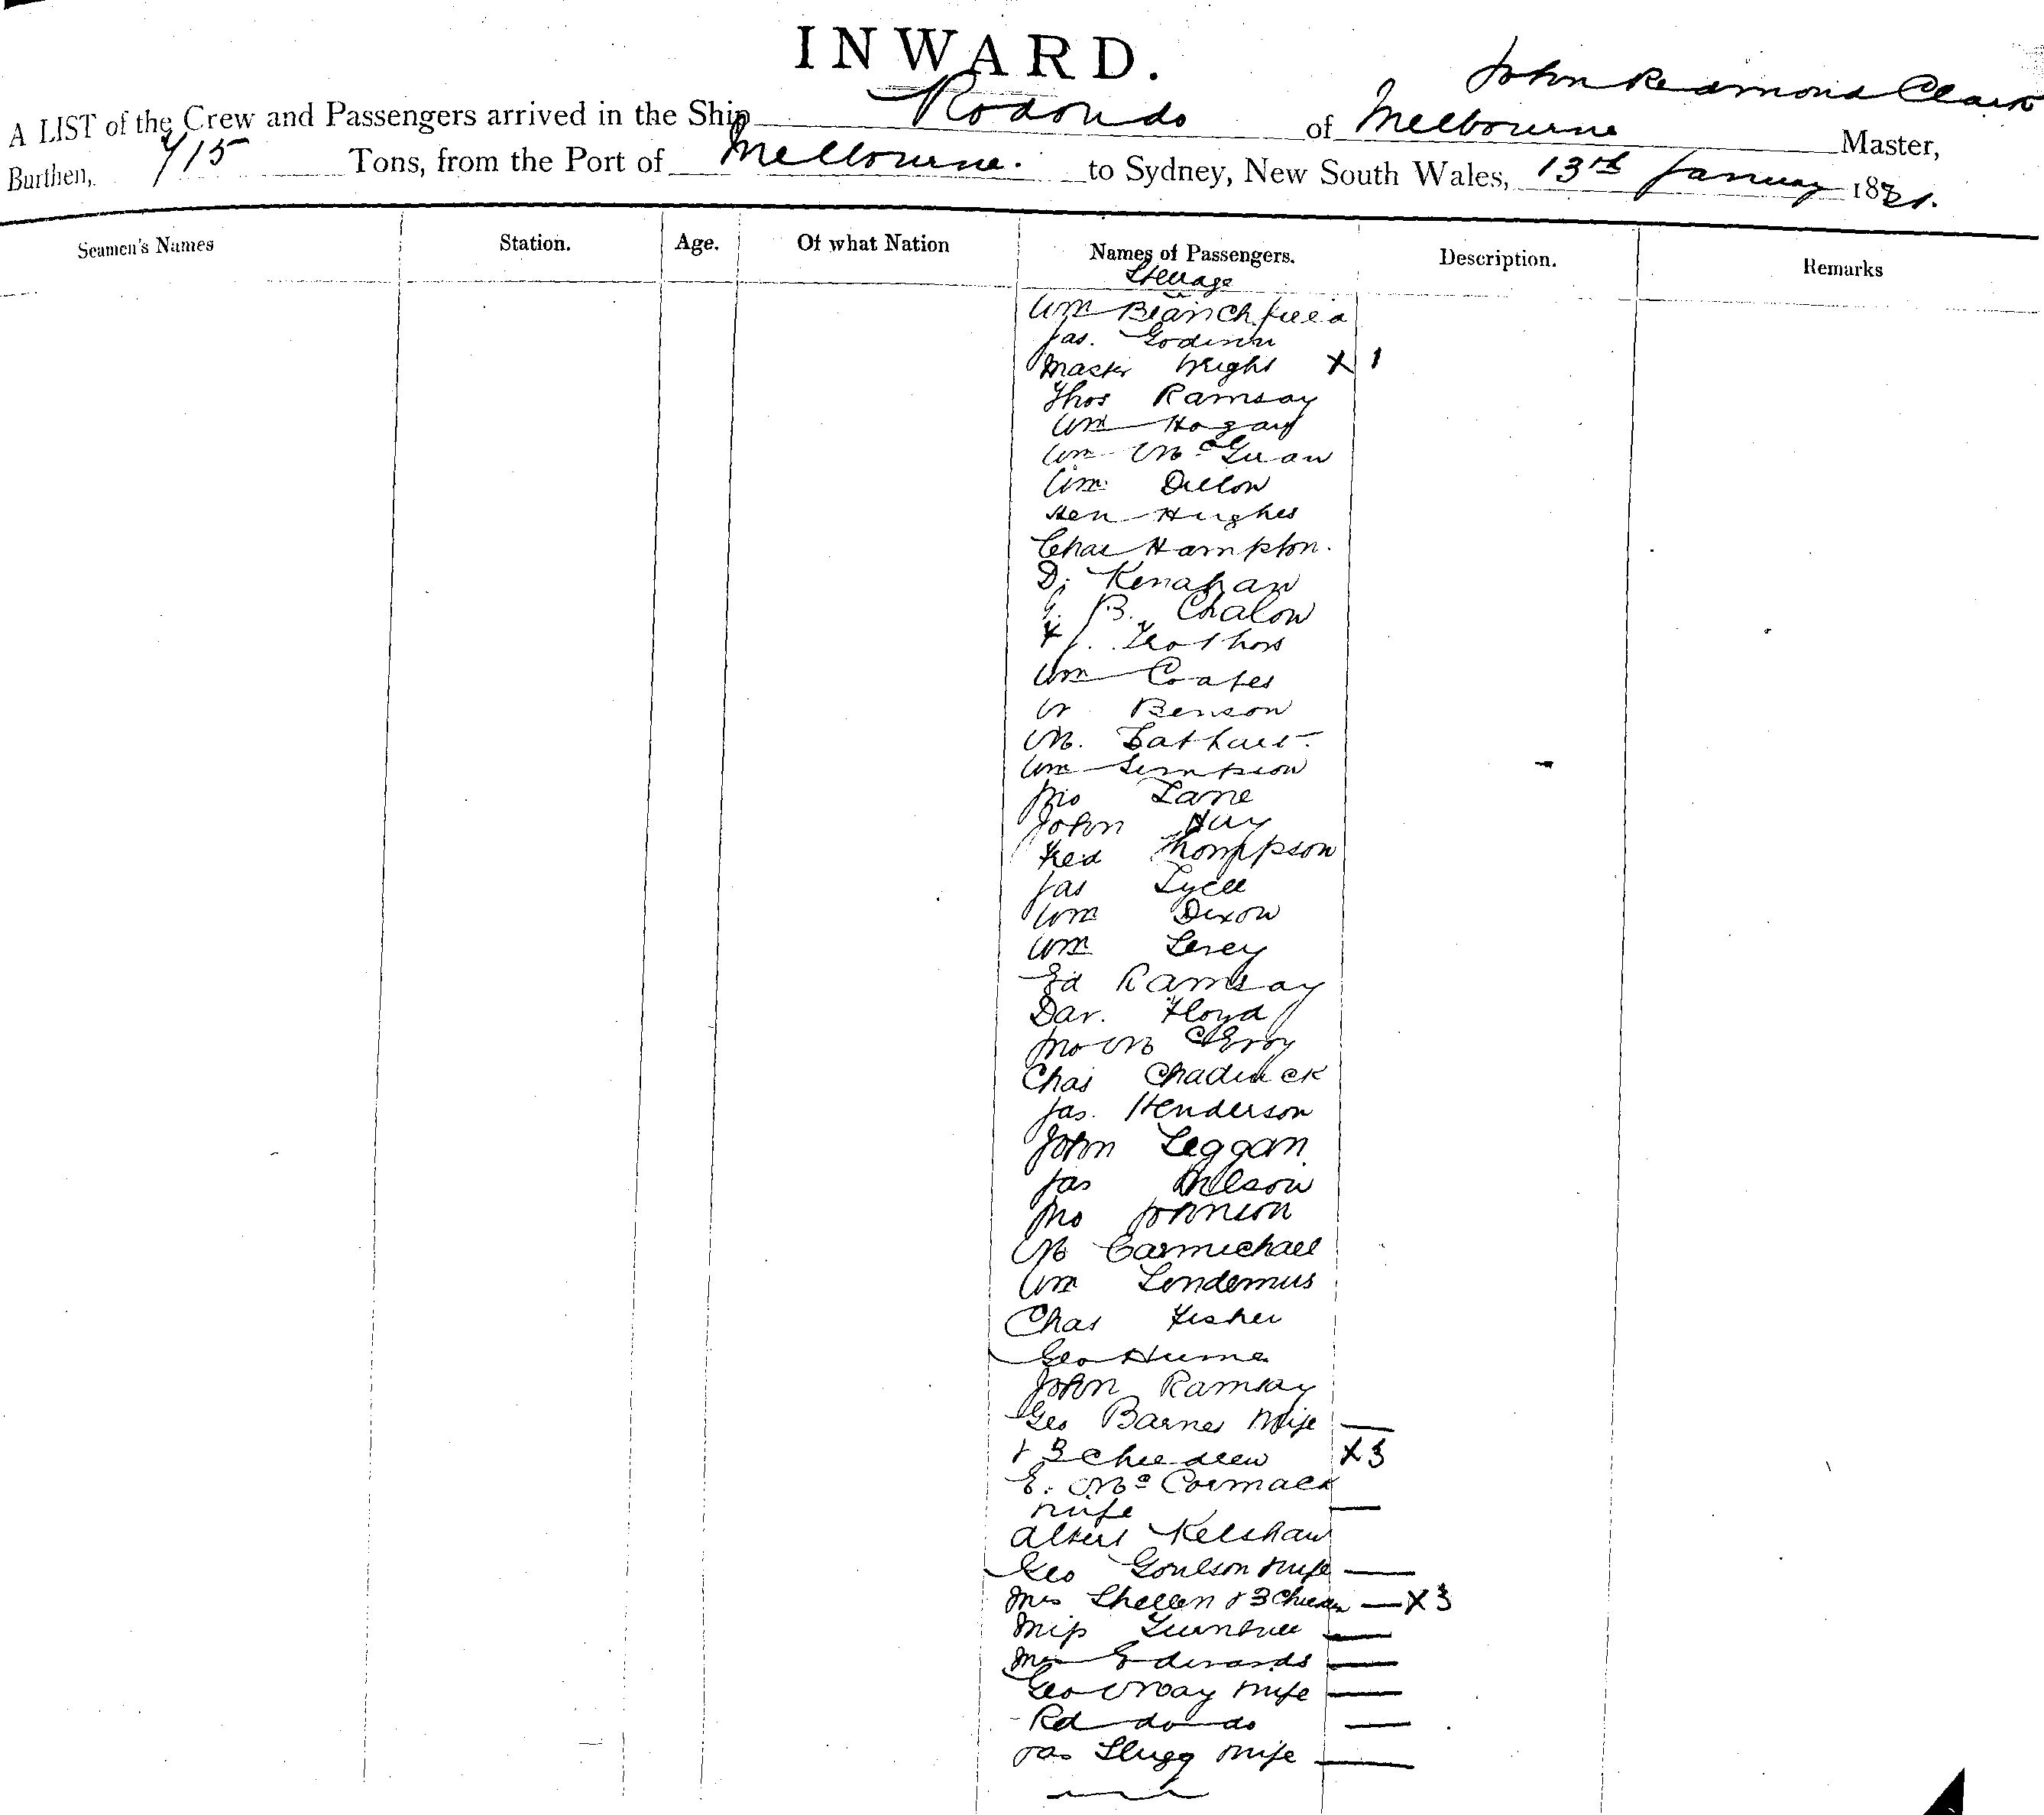 INWARD.
John Redmond Clark
A LIST of the Crew and Passengers arrived in the Ship Rodondo of Melbourne Master,
Burthen, 715 Tons, from the Port of Melbourne. to Sydney, New South Wales, 13th January 1881.
Seamen's Names Station. Age. Of what Nation Names of Passengers. Description. Remarks
Steerage
Wm Blanchfield
Jas.
Master Wright X 1
Thos Ramsay
Wm Hogan
Wm
Wm Dillon
Hen Hughes
Chas Hampton.
D. Kenahan
G. B. Chalow
Wm Coates
W Benson
M.
Wm Simpson
Jno Lane
John Hay
Fred Thompson
Jas Lyell
Wm Dixon
Wm
Ed Ramsay
Dav. Floyd
Jno McEvoy
Chas Chadwick
Jas. Henderson
John Leggan
Jas Wilson
Jno Johnson
M Carmichael
Wm Lendemus
Chas Fisher
Geo Hume
John Ramsay
Geo Barnes Wife —
& 3 Children X3
E. McCormack
Wife —
Albert Kelshaw
Geo Goulson Wife —
Mrs Shellen & 3 Children — X3
Miss Turnbull —
Mrs Edwards —
Geo May Wife —
Rd do do —
Jas Slugg Wife —